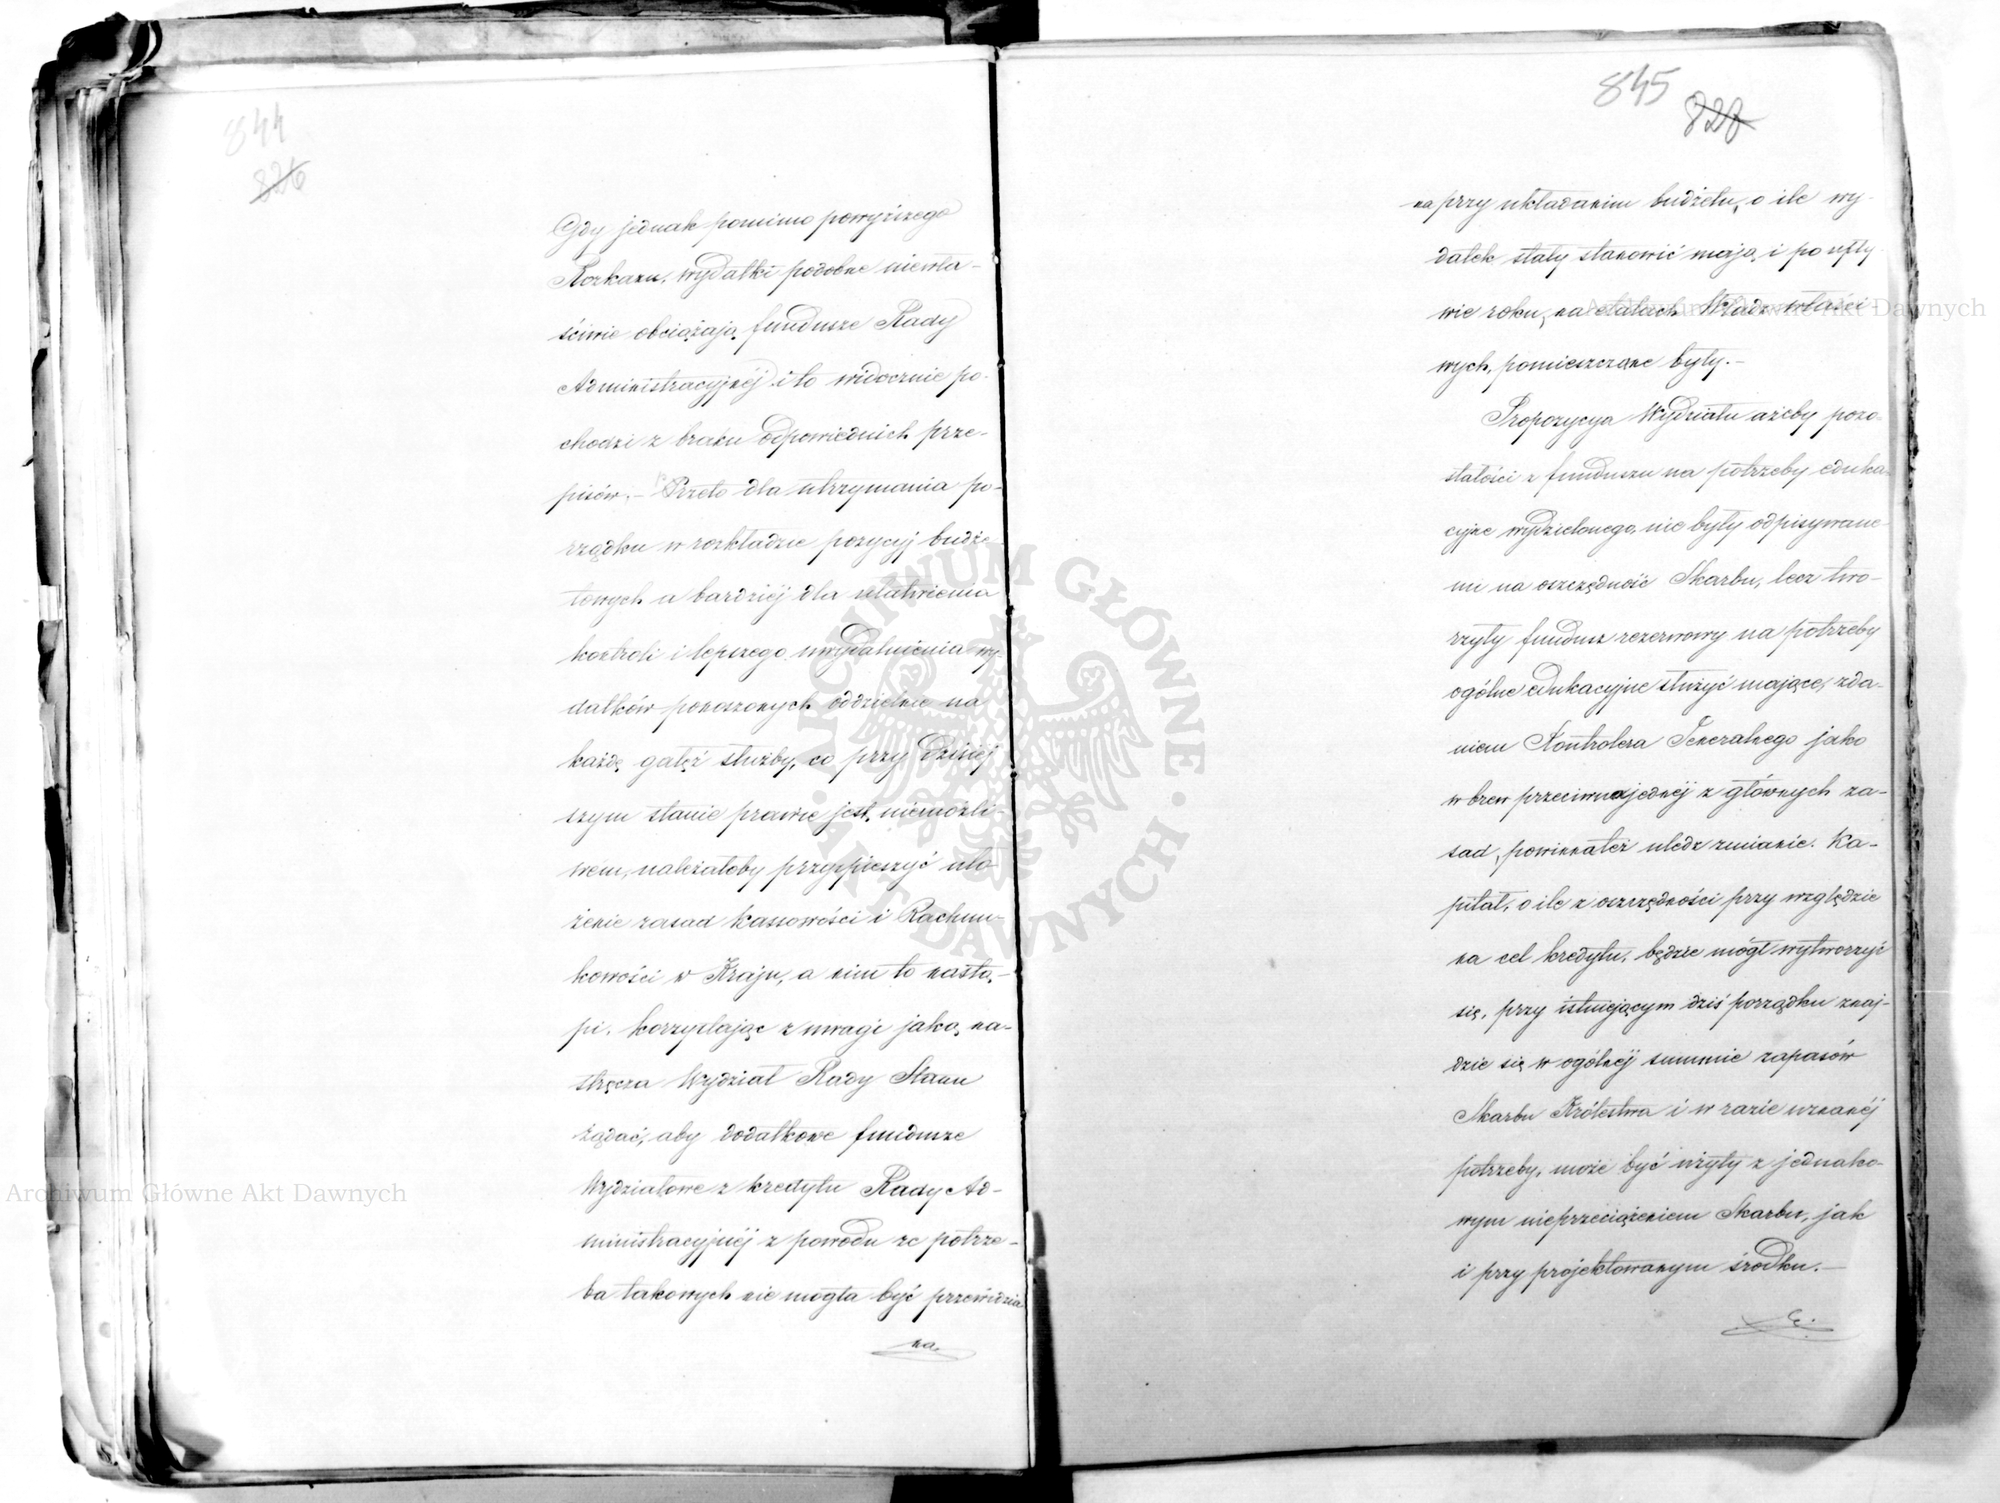 844
826
Gdy jednak pomimo powyższego
Rozkazu, wydatki podobne niewła-
ściwie obciążają fundusze Rady
Administracyjnéj i to widocznie po-
chodzi z braku odpowiednich prze-
pisów. – Przeto dla utrzymania po-
rządku w rozkładzie pozycyj budże-
towych a bardziéj dla ułatwienia
kontroli i lepszego uwydatnienia wy-
datków ponoszonych oddzielnie na
każdę gałęź służby, co przy dzisiéj
szym stanie prawie jest niemożli-
wem, należałoby przyspieszyć uło
żenie zasad Kassowości i Rachun-
kowości w Kraju, a nim to nastą-
pi, korzystając z uwagi jaką na-
stręcza Wydział Rady Stanu
żądać, aby dodatkowe fundusze
Wydziałowe z kredytu Rady Ad-
ministracyjnéj z powodu że potrze-
ba takowych nie mogła być przewidzia
na.
845
828
na przy układaniu budżetu, o ile wy-
datek stały stanowić mają i po upły
wie roku, na etatach Władz właści-
wych, pomieszczone były. –
Propozycya Wydziału ażeby pozo-
stałości z funduszu na potrzeby eduka-
cyjne wydzielonego, nie były odpisywane-
mi na oszczędność Skarbu, lecz two-
rzyły fundusz rezerwowy na potrzeby
ogólne edukacyjne służyć mające, zda-
niem Kontrolera Jeneralnego jako
wbrew przeciwna jednéj z głównych za-
sad, powinna też uledz zmianie. Ka-
pitał, o ile z oszczędności przy względzie
na cel kredytu, będzie mógł wytworzyć
się, przy istniejącym dziś porządku znaj-
dzie się w ogólnéj summie zapasów
Skarbu Królestwa i w razie uznanéj
potrzeby, może być użyty z jednako-
wym nieprzeciążeniem Skarbu, jak
i przy projektowanym środku. –
Archiwum Główne Akt Dawnych
Archiwum Główne Akt Dawnych
ARCHIWUM GŁÓWNE · AKT DAWNYCH ·